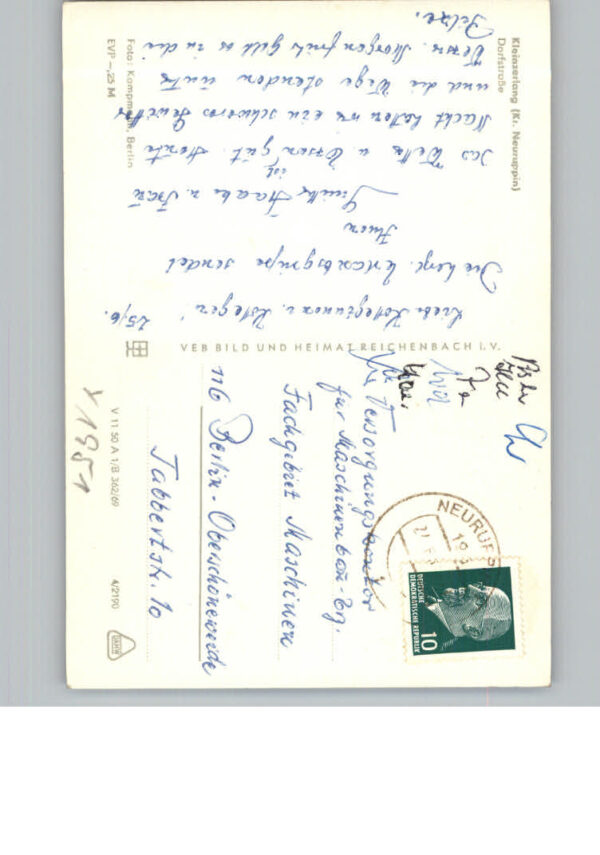 Kleinzerlang (Kr. Neuruppin)
Dorfstraße
25/6.
Liebe Kolleginnen u. Kollegen!
Die herzl. Urlaubsgrüße sendet
Ihnen
Frau
Das Wetter u. Essen ist gut. Heute
Nacht hatten wir ein schweres Gewitter
und die Wege standen unter
Wass. Morgen früh geht es in die
Pilze.
Foto: Kampmann, Berlin
EVP –,25 M
VEB BILD UND HEIMAT REICHENBACH I.V.
V 11 50 A 1/B 362/69
4/2190
DEUTSCHE
DEMOKRATISCHE REPUBLIK
10
NEURUPP
Versorgungskontor
für Maschinenbau-Erz.
Fachgebiet Maschinen
116 Berlin-Oberschöneweide
Tabbertstr. 10
Y 1951